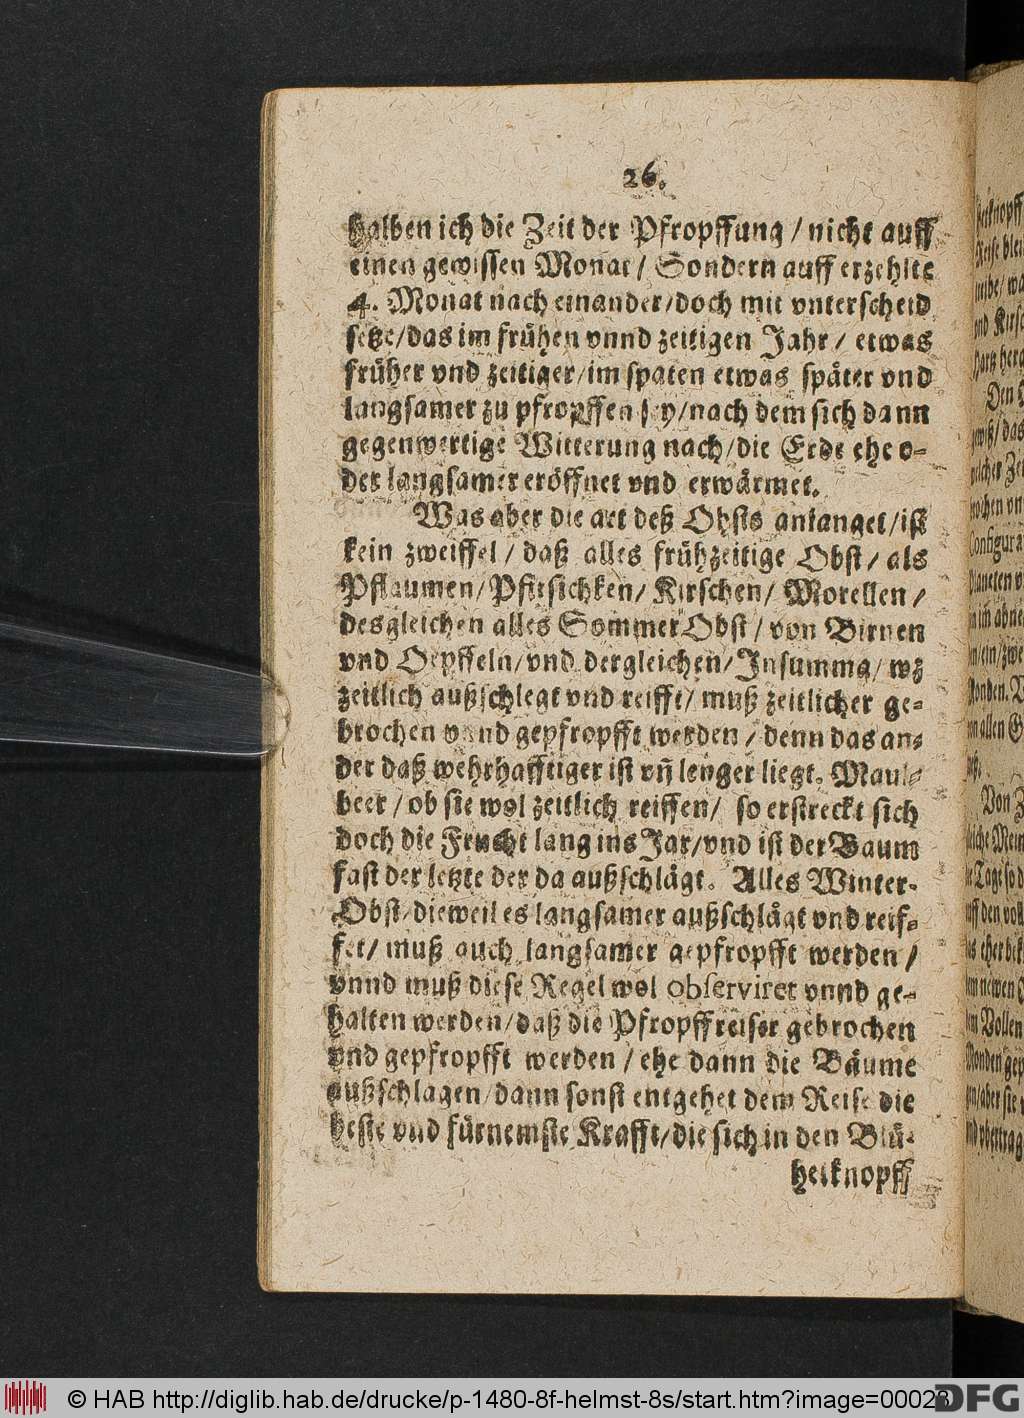 26.
halben ich die Zeit der Pfropffung / nicht auff
einen gewissen Monat / Sondern auff erzehlte
4. Monat nach einander / doch mit vnterscheid
setze / das im frühen vnnd zeitigen Jahr / etwas
früher vnd zeitiger / im spaten etwas später vnd
langsamer zu pfropffen sey / nach dem sich dann
gegenwertige Witterung nach / die Erde ehe o-
der langsamer eröffnet vnd erwärmet.
Was aber die art deß Obsts anlanget / ist
kein zweiffel / daß alles frühzeitige Obst / als
Pflaumen / Pfirsichken / Kirschen / Morellen /
desgleichen alles Sommer Obst / von Birnen
vnd Oepffeln / vnd dergleichen / Insumma / wz
zeitlich außschlegt vnd reifft / muß zeitlicher ge-
brochen vnnd gepfropfft werden / denn das an-
der daß wehrhafftiger ist vñ lenger liegt. Maul-
beer / ob sie wol zeitlich reiffen / so erstreckt sich
doch die Frucht lang ins Jar / vnd ist der Baum
fast der letzte der da außschlägt. Alles Winter-
Obst / dieweil es langsamer außschlägt vnd reif-
fet / muß auch langsamer gepfropfft werden /
vnnd muß diese Regel wol observiret vnnd ge-
halten werden / daß die Pfropffreiser gebrochen
vnd gepfropfft werden / ehe dann die Bäume
außschlagen / dann sonst entgehet dem Reise die
beste vnd fürnemste Krafft / die sich in den Blü-
heiknopff
© HAB http://diglib.hab.de/drucke/p-1480-8f-helmst-8s/start.htm?image=00028
DFG